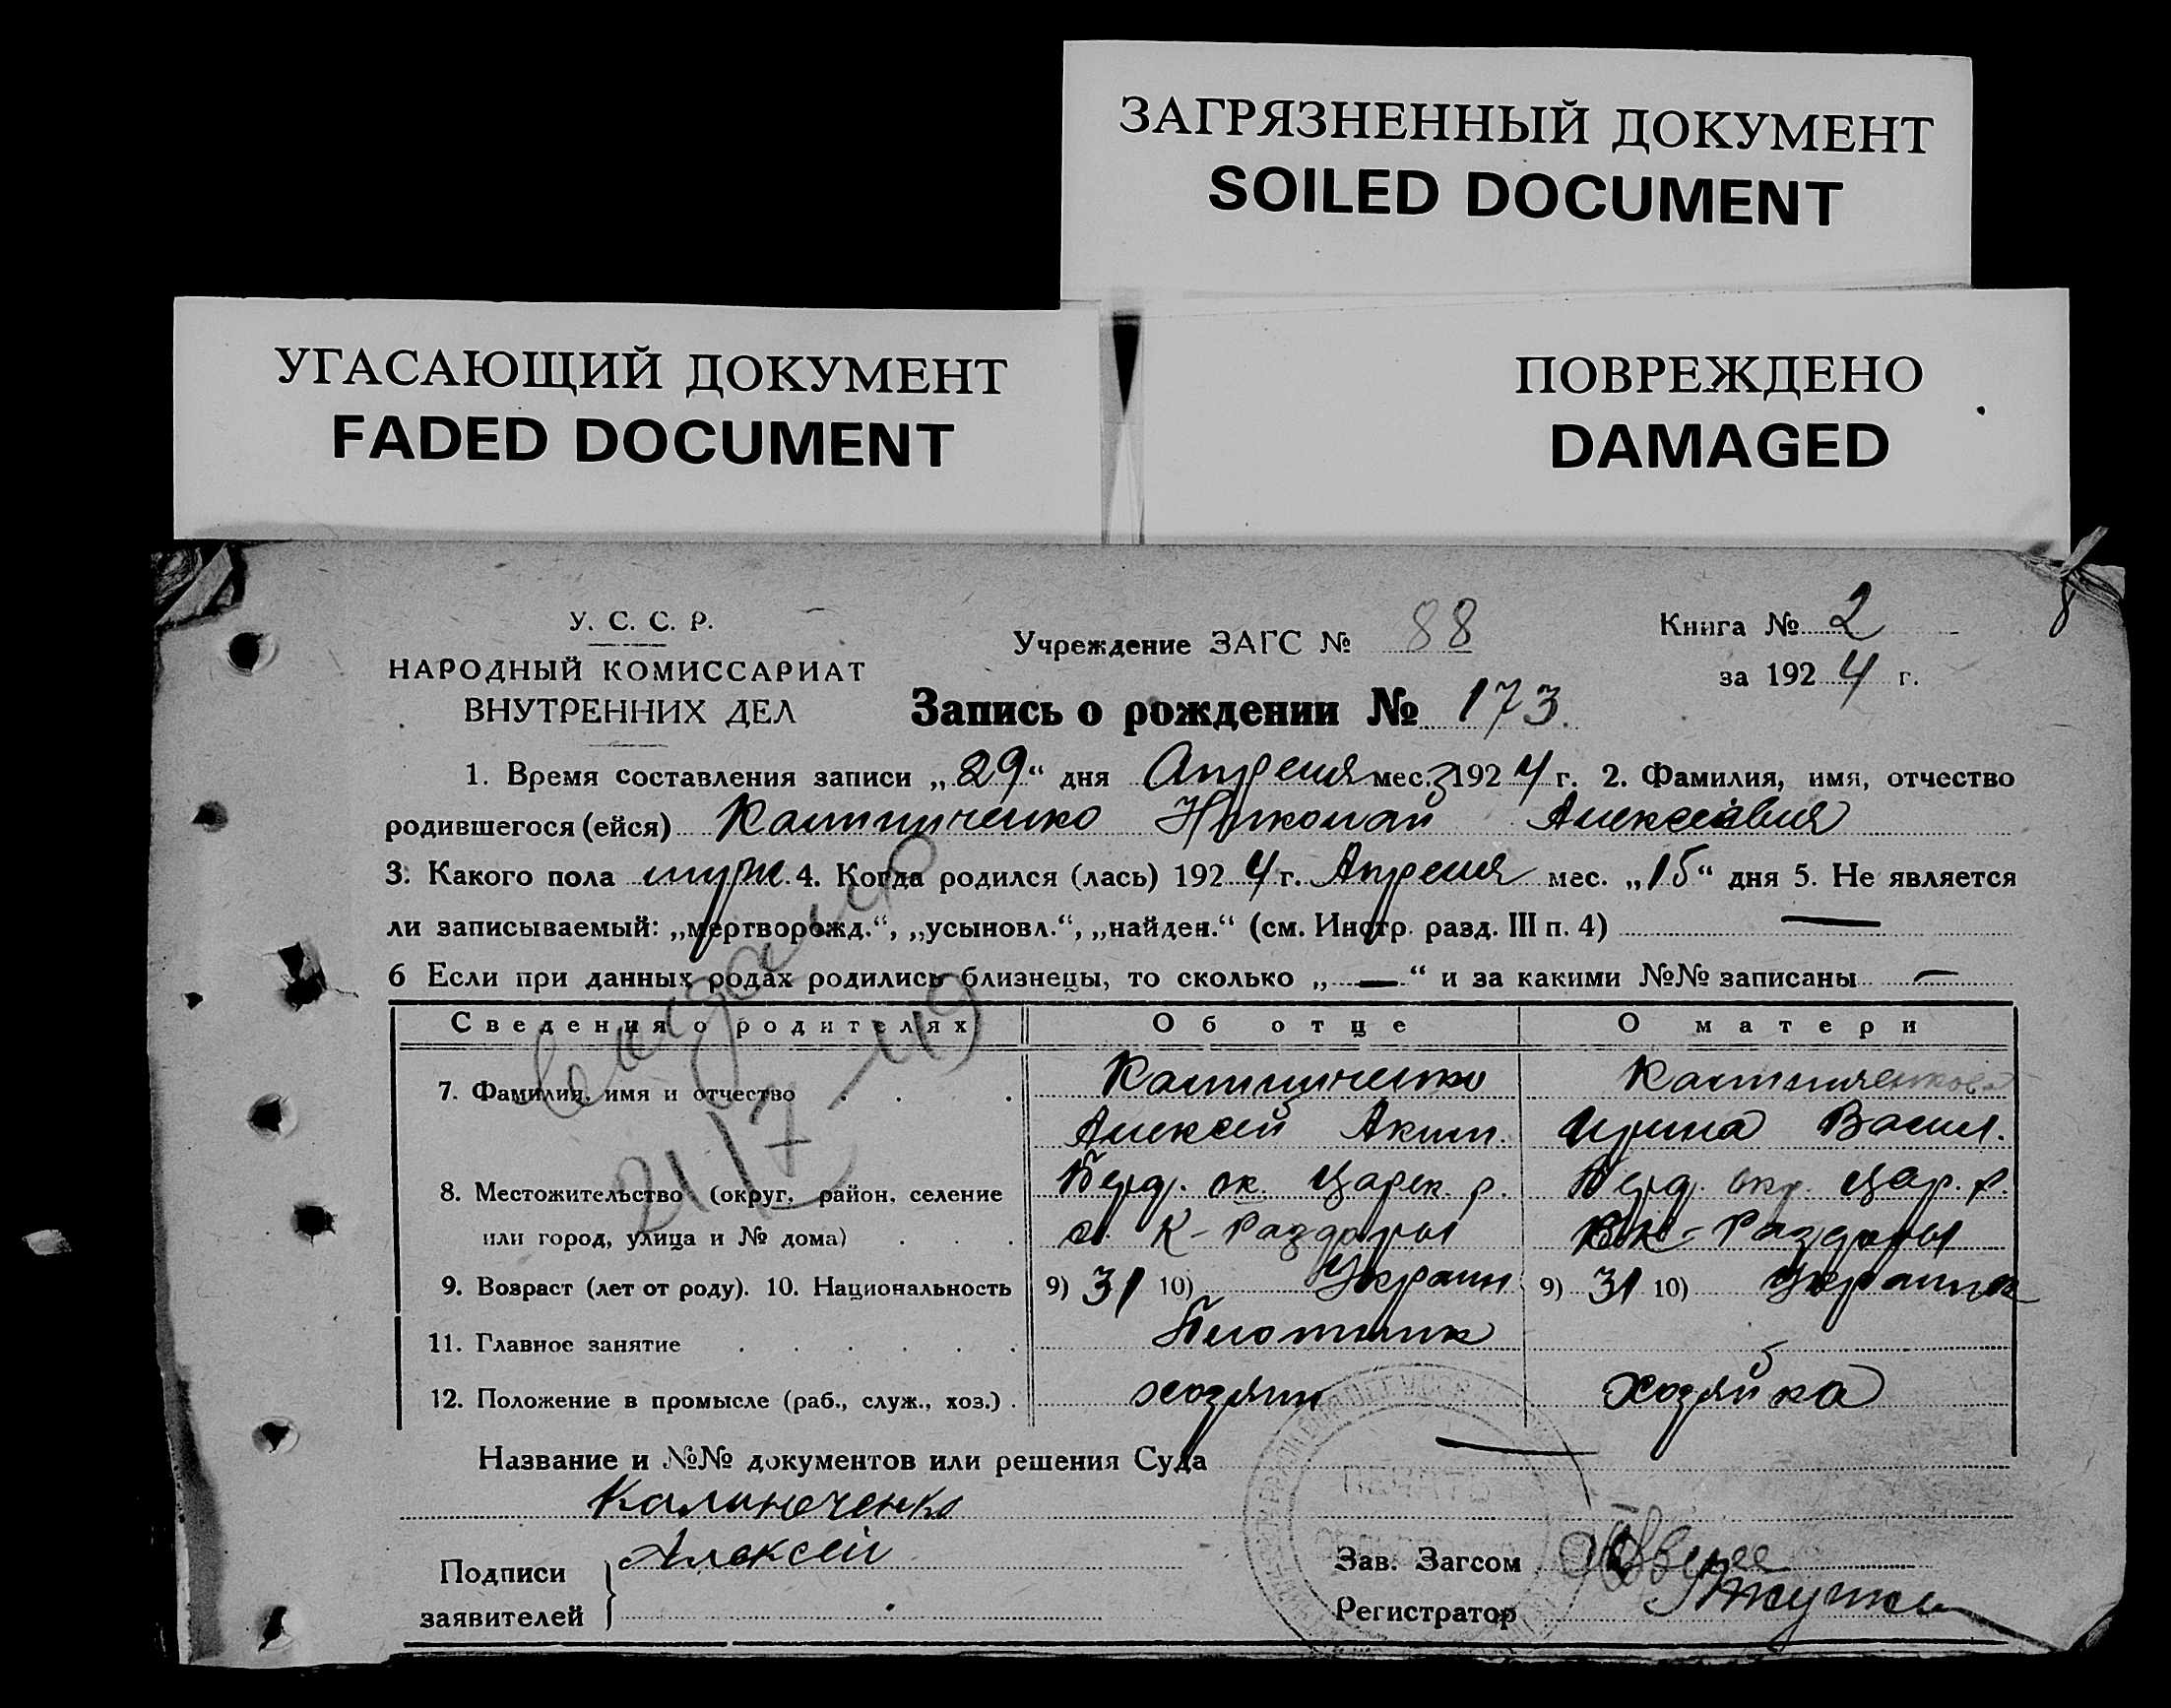 ЗАГРЯЗНЕННЫЙ ДОКУМЕНТ
SOILED DOCUMENT
УГАСАЮЩИЙ ДОКУМЕНТ
FADED DOCUMENT
ПОВРЕЖДЕНО
DAMAGED
У. С. С. Р.
НАРОДНЫЙ КОМИССАРИАТ
ВНУТРЕННИХ ДЕЛ
Учреждение ЗАГС № 88
Книга № 2
за 1924 г.
Запись о рождении № 173.
1. Время составления записи „29“ дня Апреля мес. 1924 г. 2. Фамилия, имя, отчество
родившегося (ейся) Калиниченко Николай
3. Какого пола муж. 4. Когда родился (лась) 1924 г. Апреля мес. „15“ дня 5. Не является
ли записываемый: „мертворожд.“, „усыновл.“, „найден.“ (см. Инстр. разд. III п. 4) —
6 Если при данных родах родились близнецы, то сколько „—“ и за какими №№ записаны —
Сведения о родителях Об отце О матери
7. Фамилия, имя и отчество Калиниченко
Алексей Аким. Ирина Васил.
8. Местожительство (округ, район, селение Берд. ок. Царек. р. Берд. окр. Цар. р.
или город, улица и № дома) с. К-Раздоры К-Раздоры
9. Возраст (лет от роду). 10. Национальность 9) 31 10) Украин 9) 31 10)
11. Главное занятие Плотник
12. Положение в промысле (раб., служ., хоз.) хозяин Хозяйка
Название и №№ документов или решения Суда —
Калиниченко
Подписи Алексей
заявителей
Зав. Загсом
Регистратор
ПЕЧАТЬ
21/7-49